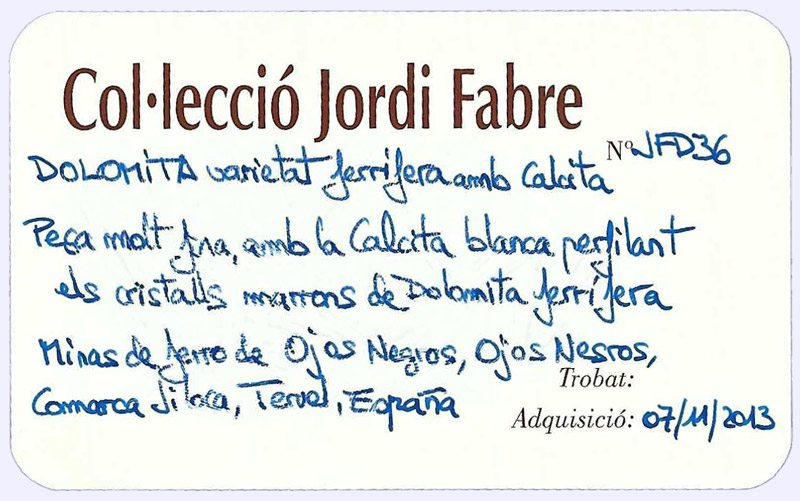 Col·lecció Jordi Fabre
Nº JFD36
DOLOMITA varietat ferrífera amb Calcita
Peça molt fina, amb la Calcita blanca perfilant
els cristalls marrons de Dolomita ferrífera
Minas de ferro de Ojos Negros, Ojos Negros,
Comarca Jiloca, Teruel, España
Trobat:
Adquisició: 07/11/2013